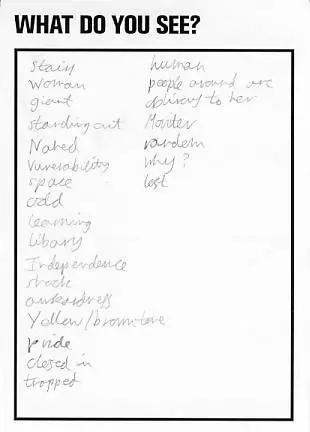 WHAT DO YOU SEE?
Stairs
Woman
giant
standing out
Naked
Vunerability
space
odd
learning
libary
Independence
shock
awkwardness
Yellow/brown tone
pride
closed in
trapped
human
people around are
oblivious to her
Monster
random
why?
lost